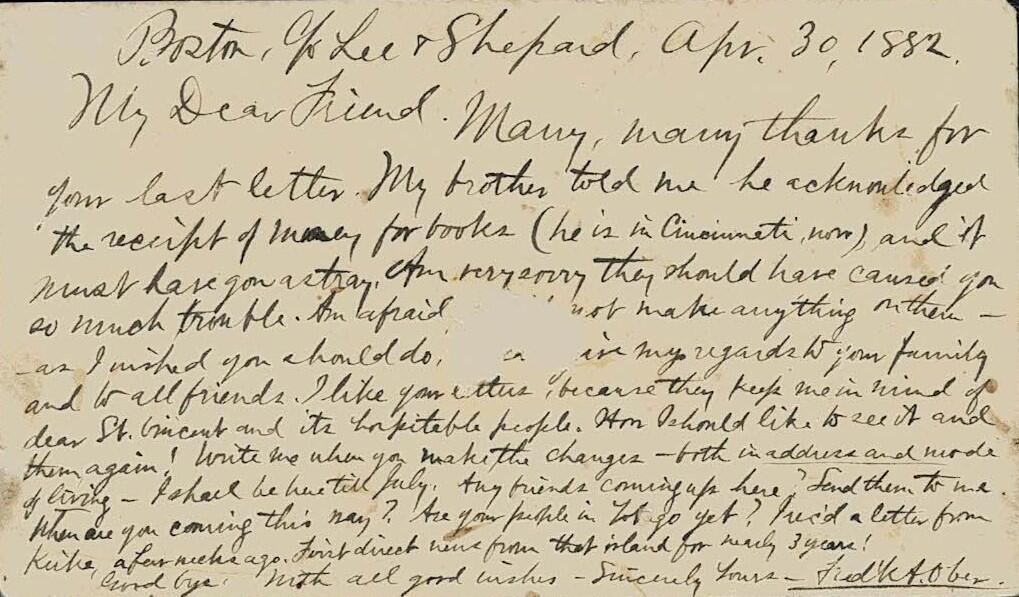 Boston, c/o Lee & Shepard, Apr. 30, 1882.
My Dear Friend. Many, many thanks for
your last letter. My brother told me he acknowledged
the receipt of money for books (he is in Cincinnati, now), and it
must have gon astray. Am very sorry they should have caused you
so much trouble. Am afraid not make anything on them —
— as I wished you should do. my regards to your family
and to all friends. I like your letters, because they keep me in mind of
dear St. Vincent and its hospitable people. How I should like to see it and
them again! Write me when you make the changes — both in address and mode
of living — I shall be here till July. Any friends coming up here? Send them to me.
When are you coming this way? Are your people in Tobago yet? I rec'd a letter from
a few weeks ago. First direct news from that island for nearly 3 years!
Good bye. With all good wishes — Sincerely Yours — Fred'k A. Ober.